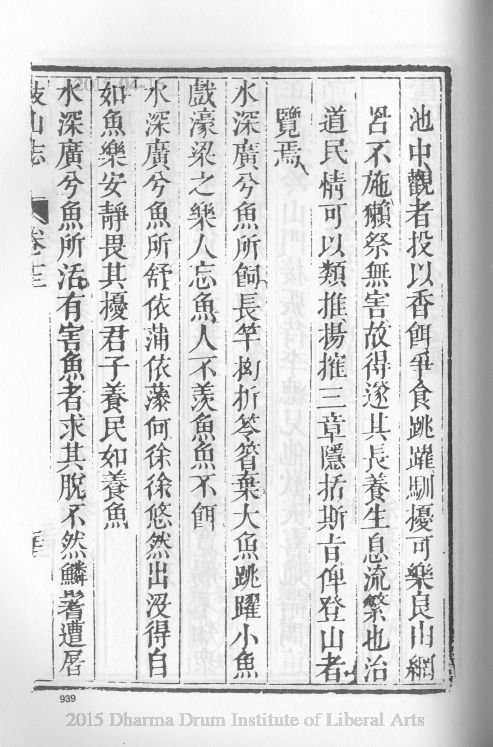 池中觀者投以香餌爭食跳躍馴擾可樂良由網
罟不施獺祭無害故得遂其長養生息流繁也治
道民情可以類推揚搉三章隱括斯旨俾登山者
覽焉
水深廣兮魚所飼長竿拗折笭箵棄大魚跳曜小魚
戲濠梁之樂人忘魚人不羨魚魚不餌
水深廣兮魚所舒依蒲依藻何徐徐悠然出沒得自
如魚樂安靜畏其擾君子養民如養魚
水深廣兮魚所活有害魚者求其脫不然鱗鬐遭屠
鼓山志 卷十三
939
2015 Dharma Drum Institute of Liberal Arts